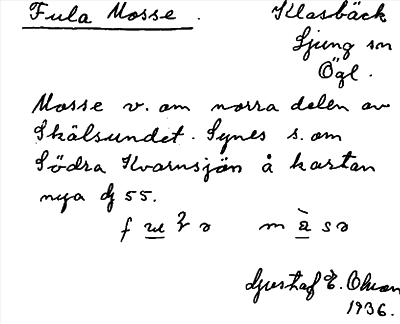 Fula Mosse.
Klasbäck
Ljung sn
Ögl.
Mosse v. om norra delen av
Skälsundet. Synes s. om
Södra Kvarnsjön å kartan
nya bl 55.
Gustaf E. Olson
1936.